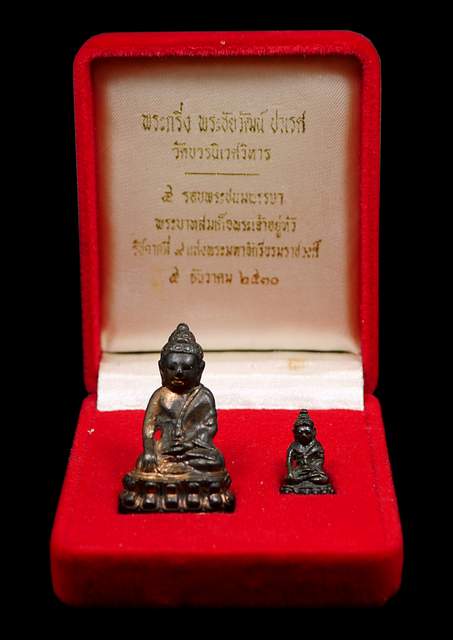 พระกริ่ง พระชัยวัฒน์ ปวเรศ
วัดบวรนิเวศวิหาร
๕ รอบพระชนมพรรษา
พระบาทสมเด็จพระเจ้าอยู่หัว
รัชกาลที่ ๙ แห่งพระมหาจักรีบรมราชวงศ์
๕ ธันวาคม ๒๕๓๐